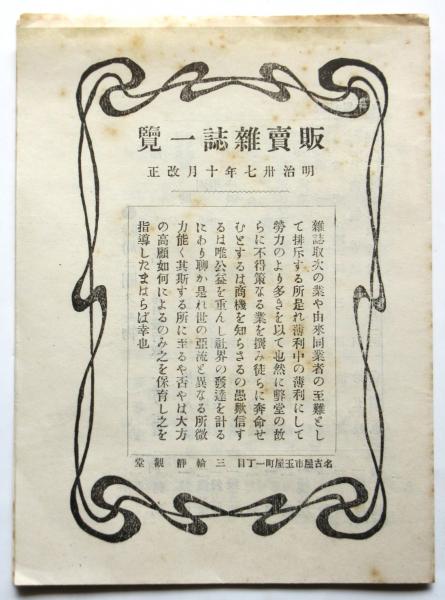 販賣雜誌一覽
明治卅七年十月改正
雜誌取次の業や由來同業者の至難とし
て排斥する所是れ薄利中の薄利にして
勞力のより多きを以て也然に弊堂の故
らに不得策なる業を撰み徒らに奔命せ
むとするは商機を知らさるの愚歟信す
るは唯公益を重んし社界の發達を計る
にあり聊か是れ世の亞流と異なる所微
力能く其斯する所に至るや否やは大方
の高願如何によるのみ之を保育し之を
指導したまはらば幸也
名古屋市玉屋町一丁目 三輪靜觀堂